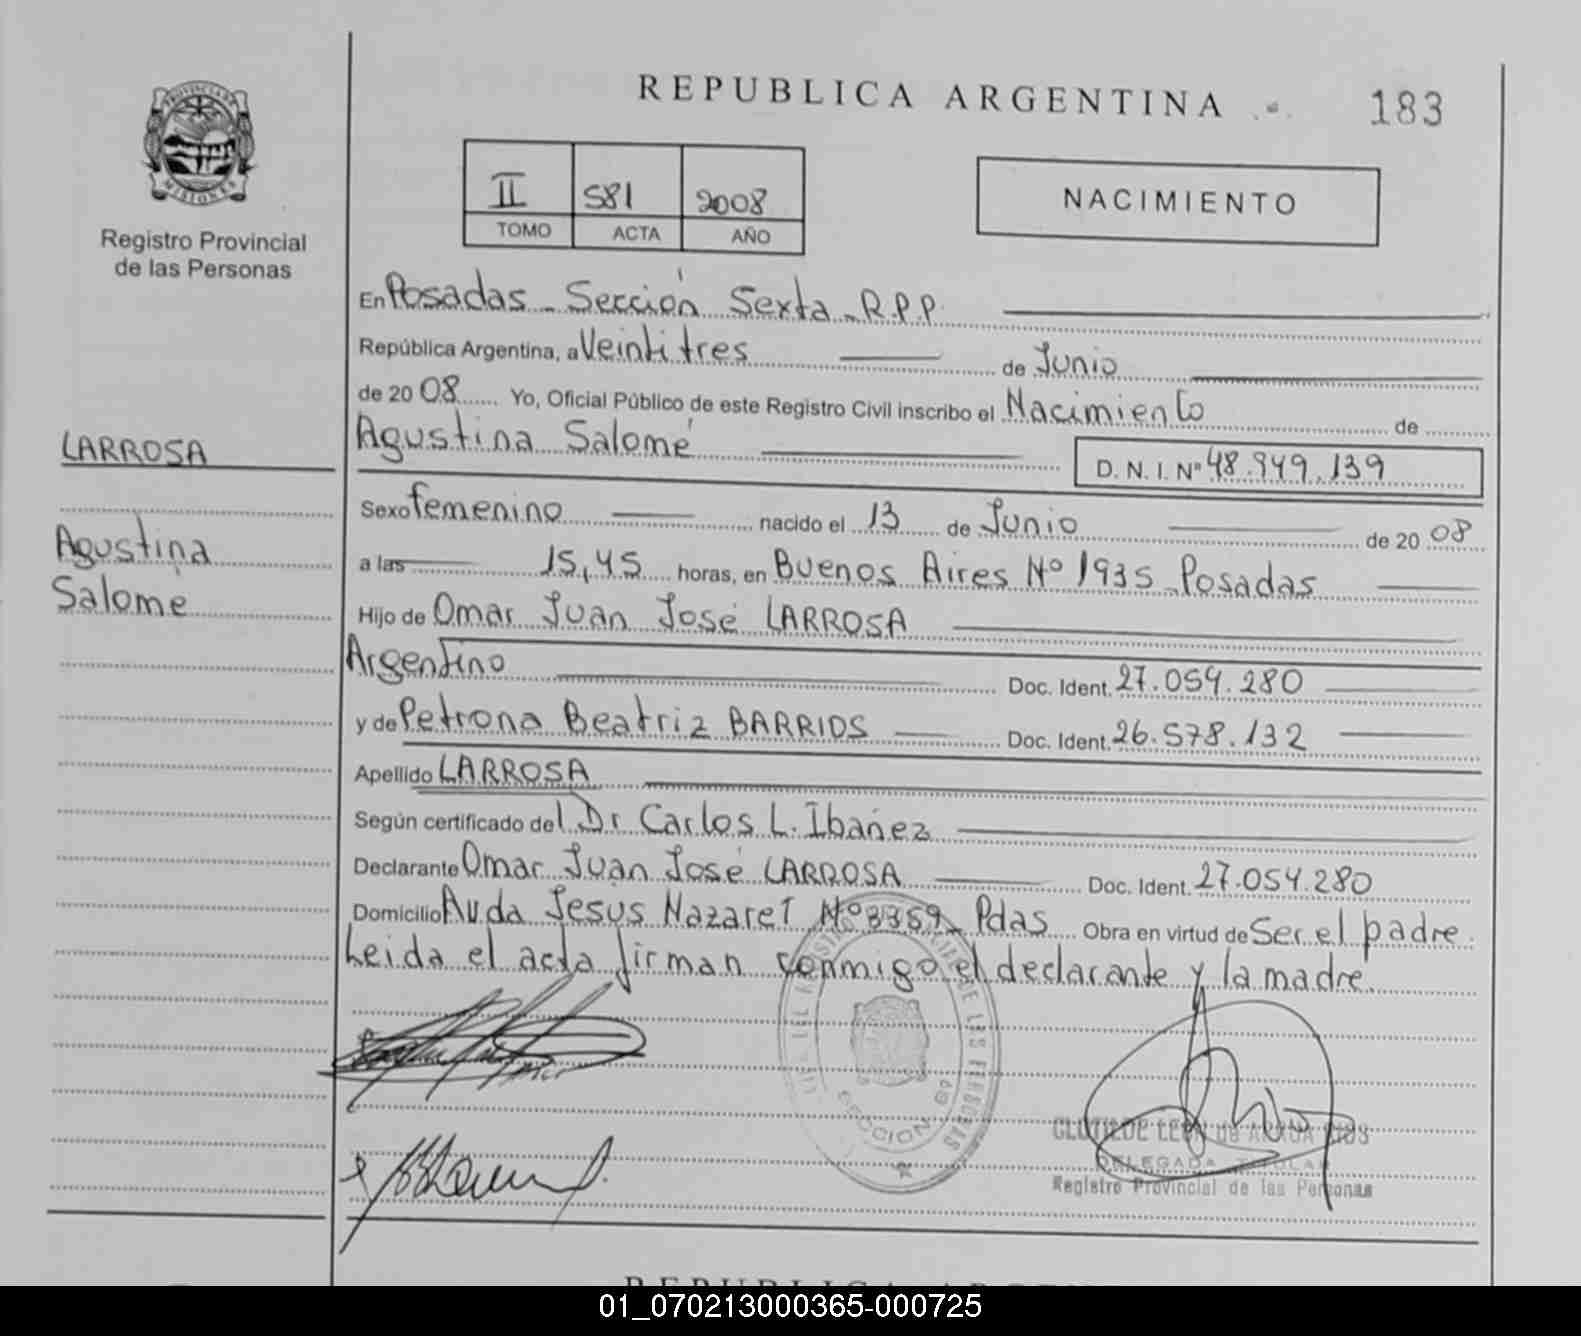 REPUBLICA ARGENTINA
183
PROVINCIA DE
MISIONES
Registro Provincial
de las Personas
II 581 2008
TOMO ACTA AÑO
NACIMIENTO
En Posadas - Sección Sexta - R.P.P.
República Argentina, a Veintitres de Junio
de 2008 Yo, Oficial Público de este Registro Civil inscribo el Nacimiento de
Agustina Salomé D. N. I. Nº 48.949.139
LARROSA
Agustina
Salomé
Sexo femenino nacido el 13 de Junio de 2008
a las 15,45 horas, en Buenos Aires Nº 1935 - Posadas
Hijo de Omar Juan José LARROSA
Argentino Doc. Ident. 27.054.280
y de Petrona Beatriz BARRIOS Doc. Ident. 26.578.132
Apellido LARROSA
Según certificado del Dr Carlos L. Ibañez
Declarante Omar Juan José LARROSA Doc. Ident. 27.054.280
Domicilio Avda Jesus Nazaret Nº 3359 - Pdas Obra en virtud de Ser el padre.
Leida el acta firman conmigo el declarante y la madre.
DE LAS PERSONAS
SECCION 6º
CLOTILDE LEON DE
DELEGADA TITULAR
Registro Provincial de las Personas
REPUBLICA ARGEN
01_070213000365-000725